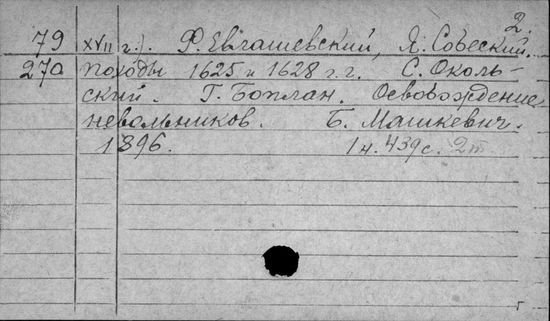 2.
79 XVII г.). Ф. Евлашевский, Я. Собеский.
270 походы 1625 и 1628 г.г. С. Околь-
ский. Г. Боплан. Освобождение
невольников. Б. Машкевич.
1896. 1 н. 439 с. 2т
г